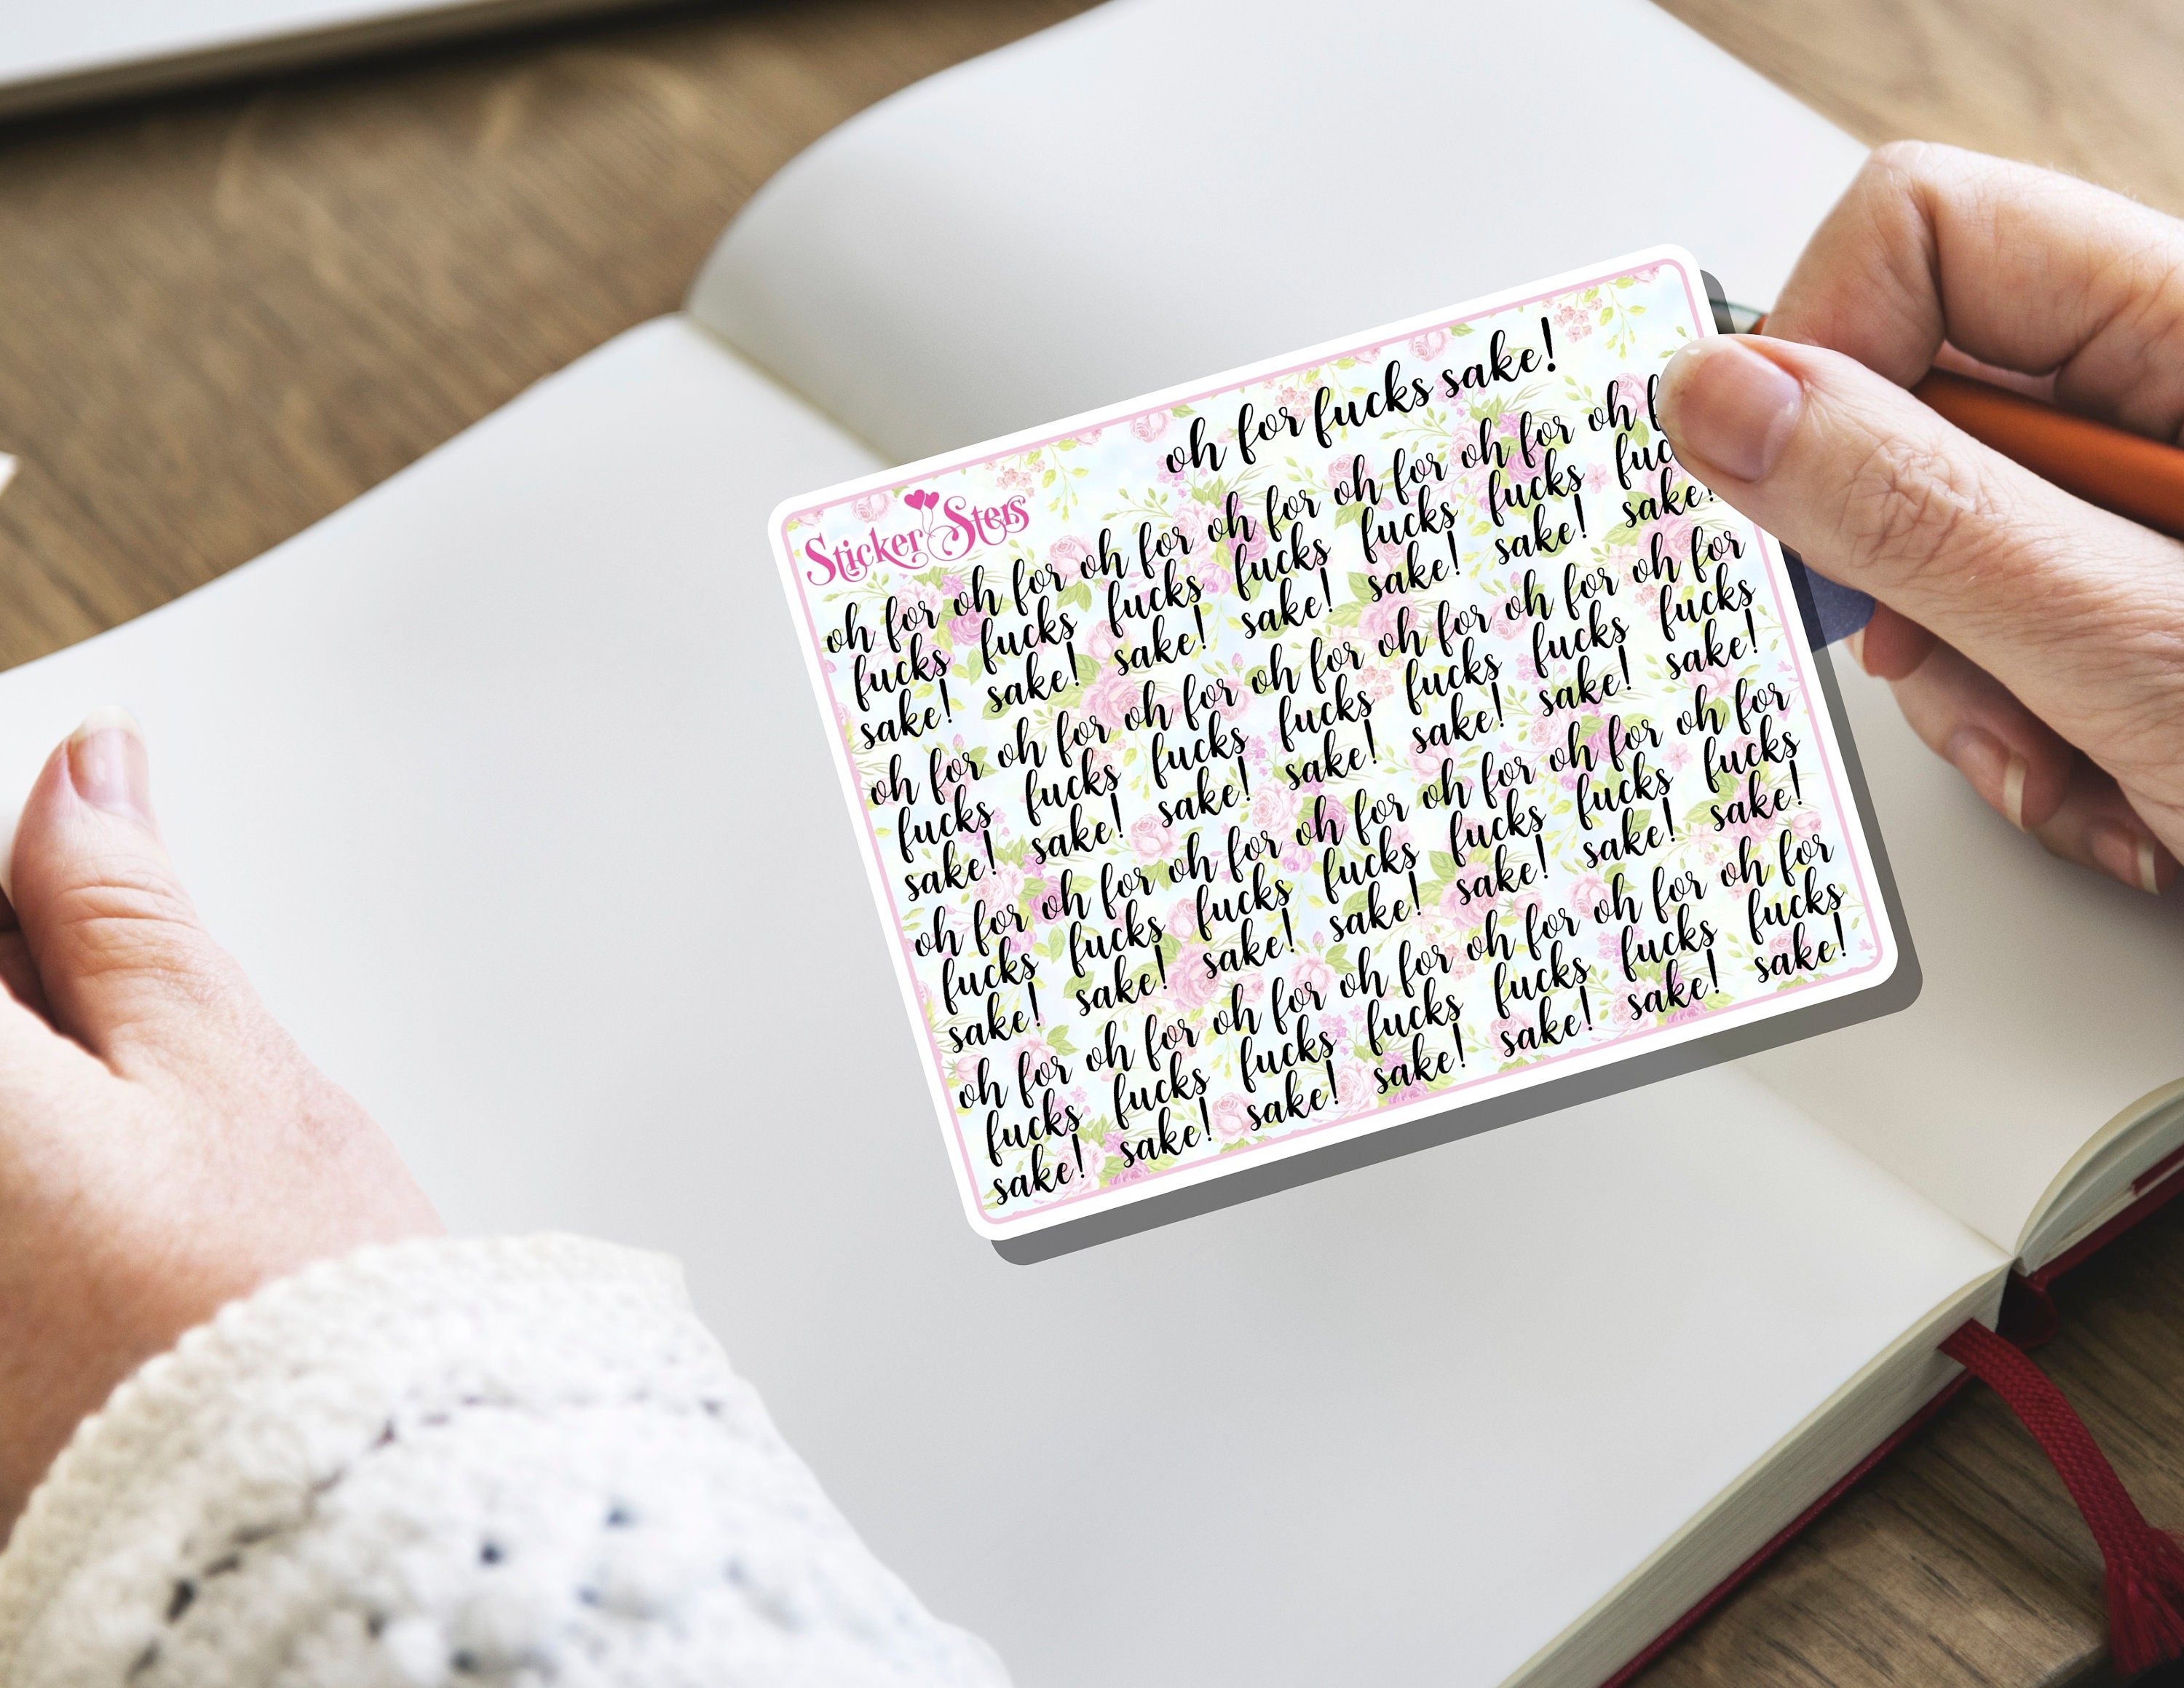 oh for fucks sake!
Sticker Sters
oh for oh for oh for oh for oh for oh for oh
fucks fucks fucks fucks fucks fucks
sake! sake! sake! sake! sake! sake! sake!
oh for oh for oh for oh for oh for oh for oh for
fucks fucks fucks fucks fucks fucks fucks
sake! sake! sake! sake! sake! sake! sake!
oh for oh for oh for oh for oh for oh for oh for
fucks fucks fucks fucks fucks fucks fucks
sake! sake! sake! sake! sake! sake! sake!
oh for oh for oh for oh for oh for oh for oh for
fucks fucks fucks fucks fucks fucks fucks
sake! sake! sake! sake! sake! sake! sake!